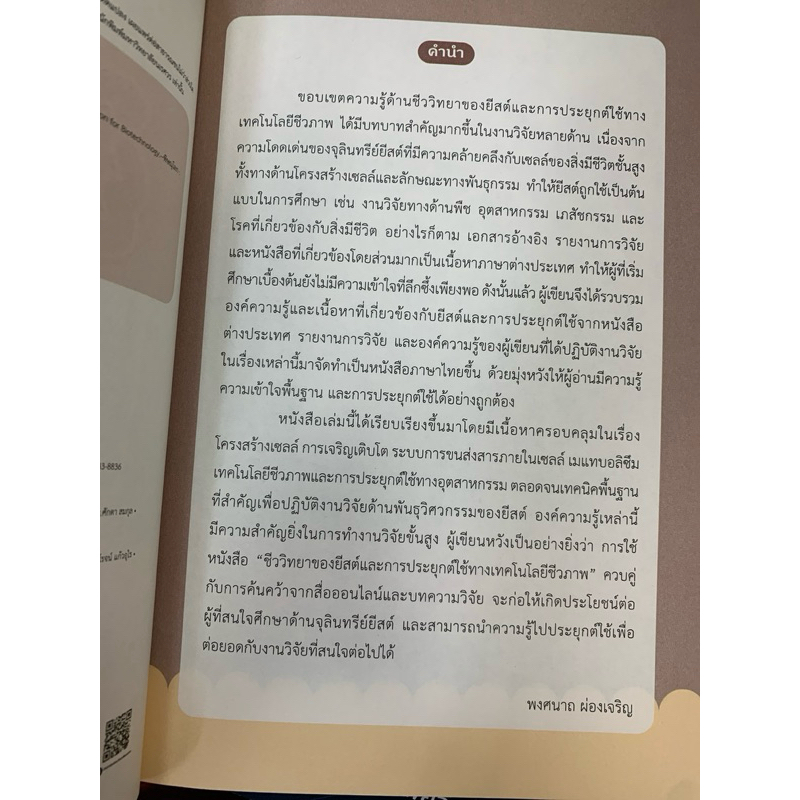 คำนำ
ขอบเขตความรู้ด้านชีววิทยาของยีสต์และการประยุกต์ใช้ทาง
เทคโนโลยีชีวภาพ ได้มีบทบาทสำคัญมากขึ้นในงานวิจัยหลายด้าน เนื่องจาก
ความโดดเด่นของจุลินทรีย์ยีสต์ที่มีความคล้ายคลึงกับเซลล์ของสิ่งมีชีวิตชั้นสูง
ทั้งทางด้านโครงสร้างเซลล์และลักษณะทางพันธุกรรม ทำให้ยีสต์ถูกใช้เป็นต้น
แบบในการศึกษา เช่น งานวิจัยทางด้านพืช อุตสาหกรรม เภสัชกรรม และ
โรคที่เกี่ยวข้องกับสิ่งมีชีวิต อย่างไรก็ตาม เอกสารอ้างอิง รายงานการวิจัย
และหนังสือที่เกี่ยวข้องโดยส่วนมากเป็นเนื้อหาภาษาต่างประเทศ ทำให้ผู้ที่เริ่ม
ศึกษาเบื้องต้นยังไม่มีความเข้าใจที่ลึกซึ้งเพียงพอ ดังนั้นแล้ว ผู้เขียนจึงได้รวบรวม
องค์ความรู้และเนื้อหาที่เกี่ยวข้องกับยีสต์และการประยุกต์ใช้จากหนังสือ
ต่างประเทศ รายงานการวิจัย และองค์ความรู้ของผู้เขียนที่ได้ปฏิบัติงานวิจัย
ในเรื่องเหล่านี้มาจัดทำเป็นหนังสือภาษาไทยขึ้น ด้วยมุ่งหวังให้ผู้อ่านมีความรู้
ความเข้าใจพื้นฐาน และการประยุกต์ใช้ได้อย่างถูกต้อง
หนังสือเล่มนี้ได้เรียบเรียงขึ้นมาโดยมีเนื้อหาครอบคลุมในเรื่อง
โครงสร้างเซลล์ การเจริญเติบโต ระบบการขนส่งสารภายในเซลล์ เมแทบอลิซึม
เทคโนโลยีชีวภาพและการประยุกต์ใช้ทางอุตสาหกรรม ตลอดจนเทคนิคพื้นฐาน
ที่สำคัญเพื่อปฏิบัติงานวิจัยด้านพันธุวิศวกรรมของยีสต์ องค์ความรู้เหล่านี้
มีความสำคัญยิ่งในการทำงานวิจัยขั้นสูง ผู้เขียนหวังเป็นอย่างยิ่งว่า การใช้
หนังสือ “ชีววิทยาของยีสต์และการประยุกต์ใช้ทางเทคโนโลยีชีวภาพ” ควบคู่
กับการค้นคว้าจากสื่อออนไลน์และบทความวิจัย จะก่อให้เกิดประโยชน์ต่อ
ผู้ที่สนใจศึกษาด้านจุลินทรีย์ยีสต์ และสามารถนำความรู้ไปประยุกต์ใช้เพื่อ
ต่อยอดกับงานวิจัยที่สนใจต่อไปได้
พงศนาถ ผ่องเจริญ
3-8836